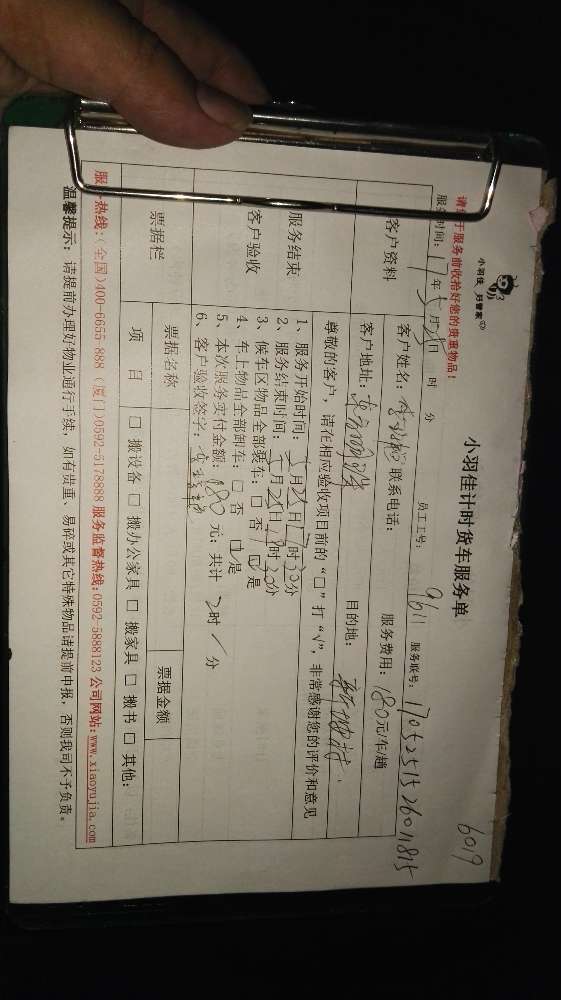 6019
小羽佳 好管家
小羽佳计时货车服务单
请您于服务前收拾好您的贵重物品！
服务时间：17年5月25日 时 分 员工工号：9611 服务联号：1705251526011815
客户资料
客户姓名： 联系电话： 服务费用：180元/车/趟
客户地址： 目的地：
服务结束
客户验收
尊敬的客户，请在相应验收项目前的“□”打“√”，非常感谢您的评价和意见
1、服务开始时间：5月25日17时30分
2、服务结束时间：5月25日19时30分
3、候车区物品全部装车：□ 否 □ 是
4、车上物品全部卸车：□ 否 □ 是
5、本次服务实付金额：180元；共计 2时/分
6、客户验收签字：
票据栏
票据名称 票据金额
项 目 □ 搬设备 □ 搬办公家具 □ 搬家具 □ 搬书 □ 其他：
服务热线：(全国)400-6655-888 (厦门)0592-5178888 服务监督热线：0592-5888123 公司网站：www.xiaoyujia.com
温馨提示：请提前办理好物业通行手续，如有贵重、易碎或其它特殊物品请提前申报，否则我司不予负责。